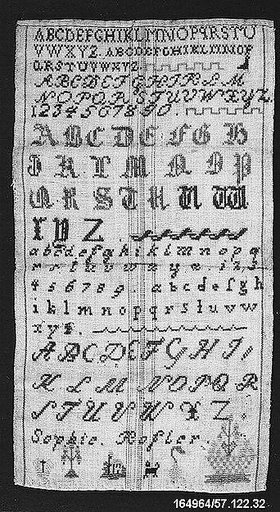 ABCDEFGHIKLMNOPQRSTU
VWXYZ. ABCDEFGHIKLMNOP
QRSTUVWXYZ.
ABCDEFGHIKLM
NOPQRSTUVWXYZ
1234567890.
ABCDEFGH
IKLMNOP
QRSTUVW
XYZ.
abcdefghiklmnopq
rstuvwxyz 123
456789. abcdefgh
iklmnopqrstuvw
xyz.
ABCDEFGHI
KLMNOPQR
STUVWXYZ.
Sophie. Kofler.
164964/57.122.32